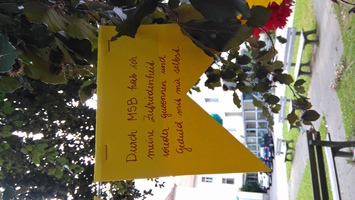 Durch MSB hab ich
meine Zufriedenheit
wieder gewonnen und
Geduld mit mir selbst